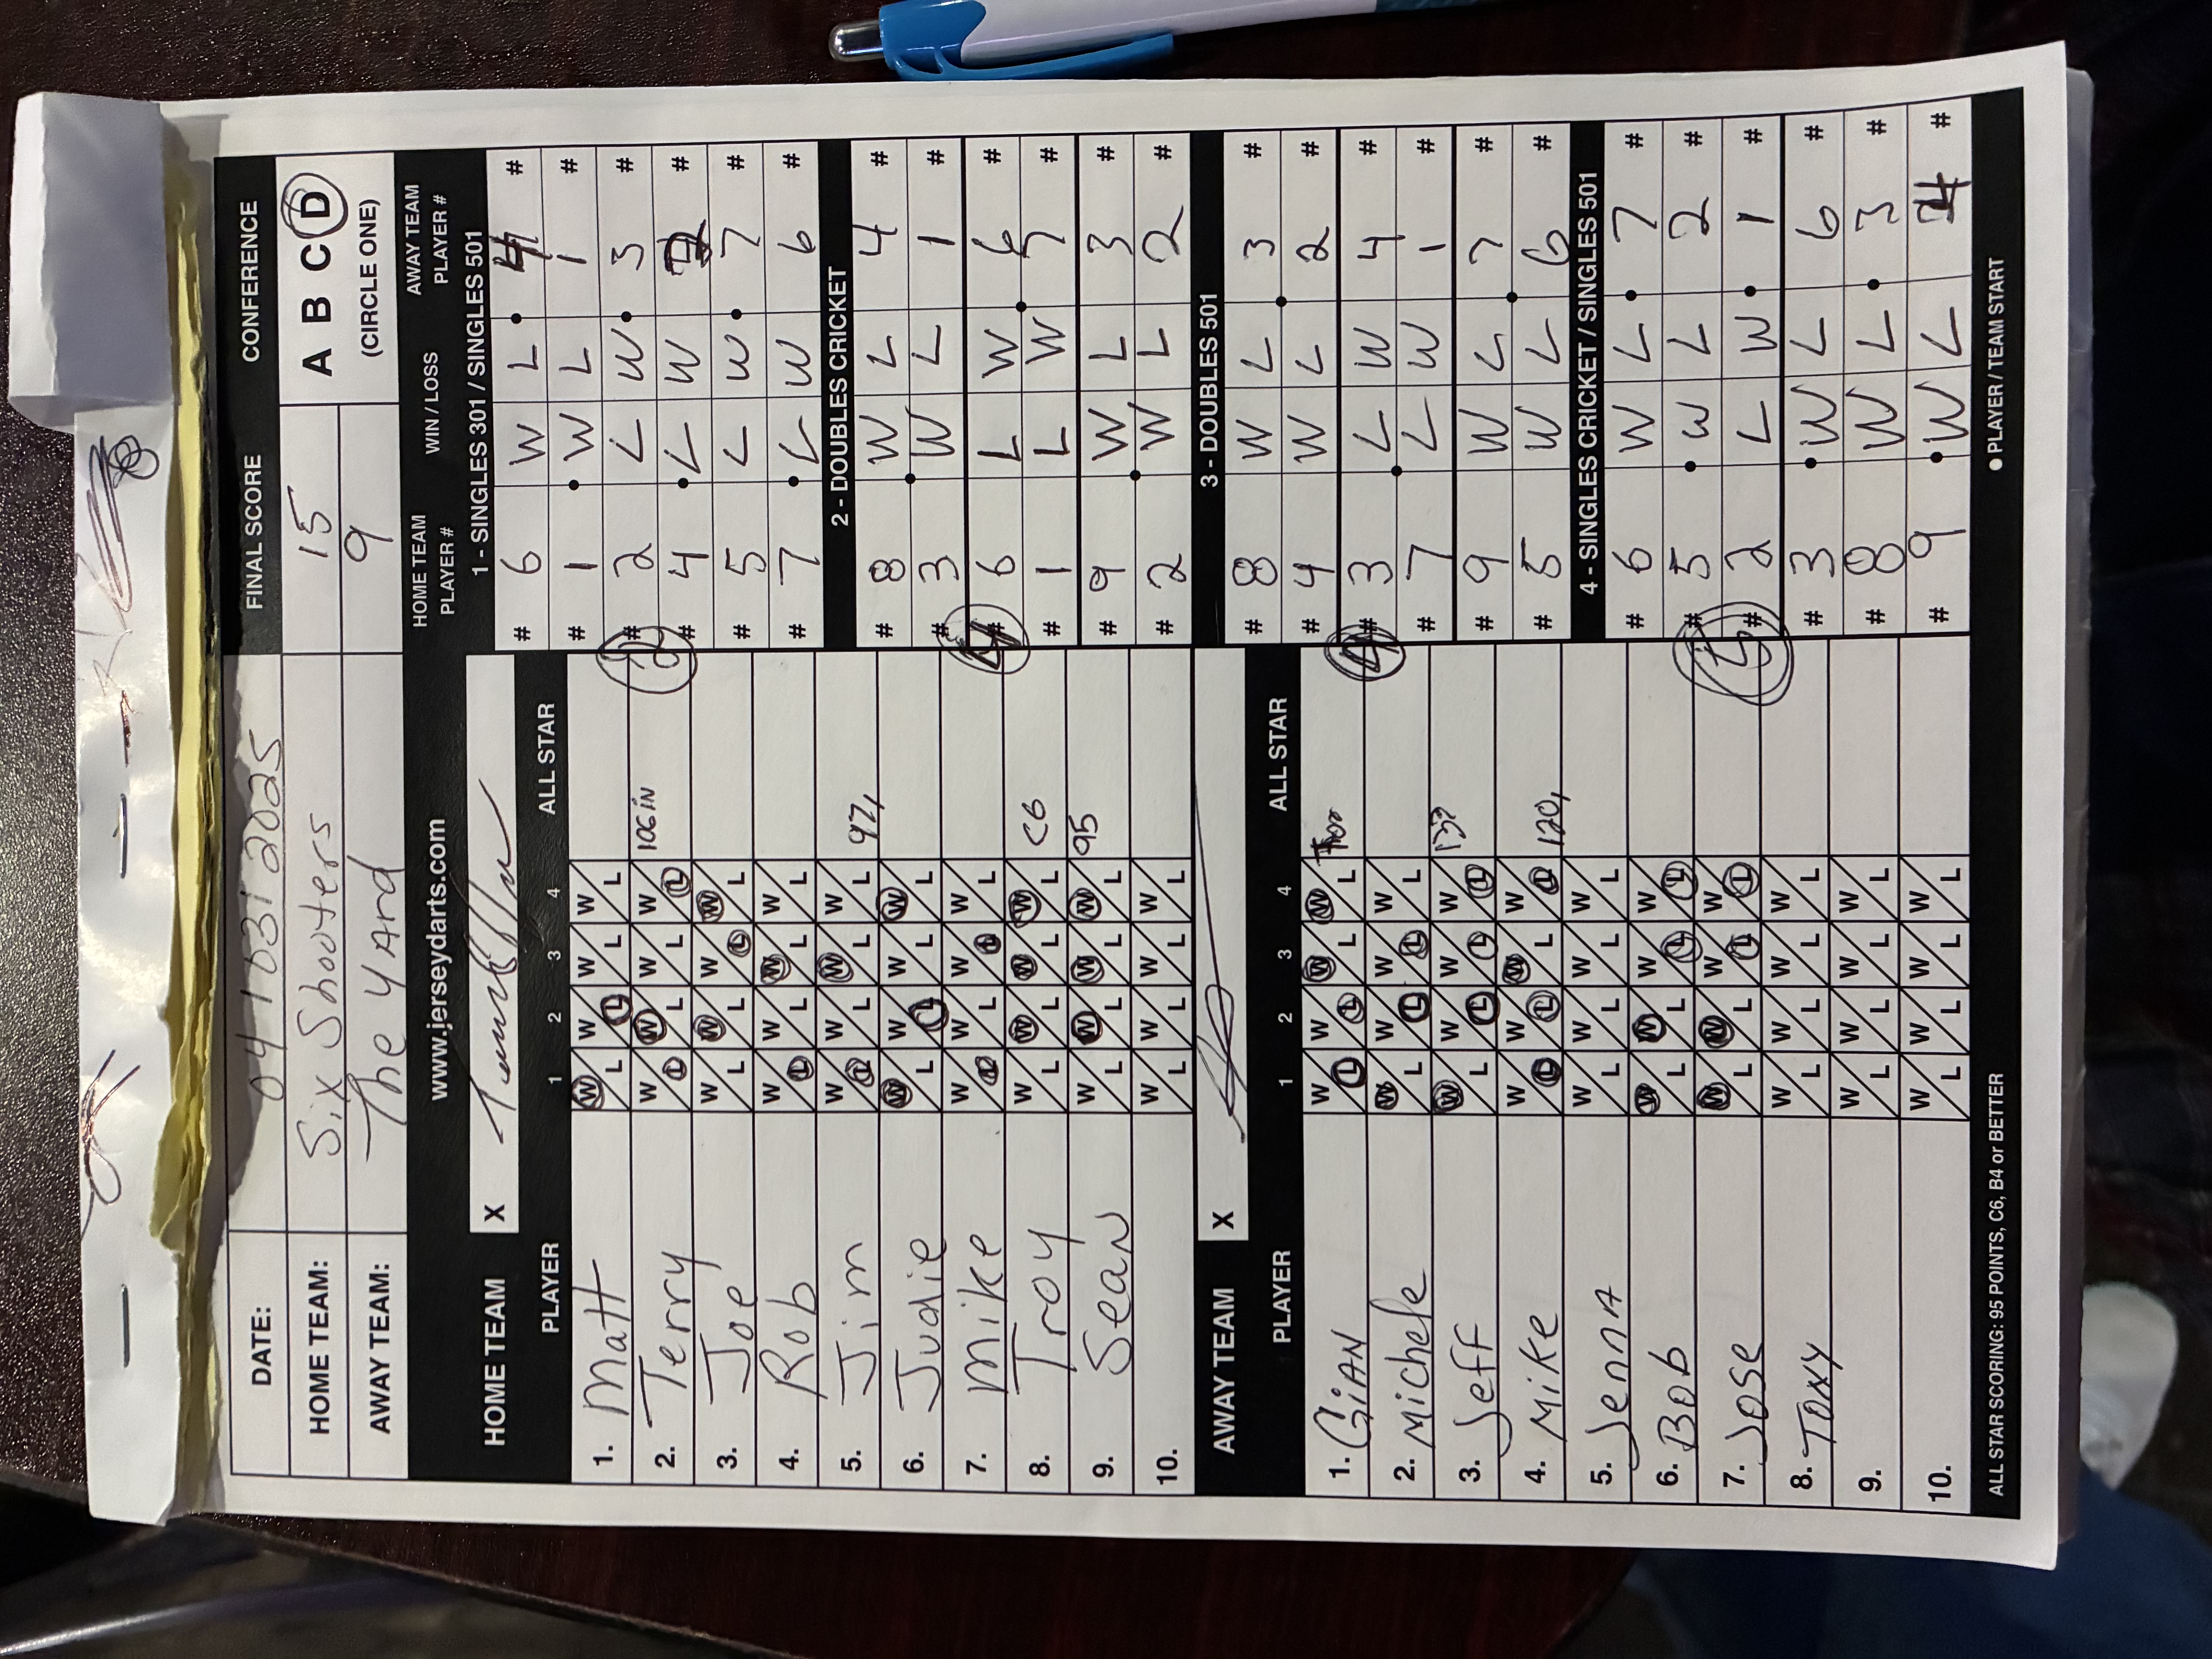 DATE: 04/03/2025 FINAL SCORE CONFERENCE
HOME TEAM: Six Shooters 15 A B C D
AWAY TEAM: The YArd 9 (CIRCLE ONE)
www.jerseydarts.com
HOME TEAM X
PLAYER 1 2 3 4 ALL STAR
1. Matt W L W L W L W L
2. Terry W L W L W L W L 106 iN
3. Joe W L W L W L W L
4. Rob W L W L W L W L
5. Jim W L W L W L W L 97,
6. Judie W L W L W L W L
7. Mike W L W L W L W L
8. Troy W L W L W L W L C6
9. Sean W L W L W L W L 95
10. W L W L W L W L
AWAY TEAM X
PLAYER 1 2 3 4 ALL STAR
1. GiAN W L W L W L W L
2. Michele W L W L W L W L
3. Jeff W L W L W L W L
4. Mike W L W L W L W L 120,
5. JennA W L W L W L W L
6. Bob W L W L W L W L
7. Jose W L W L W L W L
8. Toxy W L W L W L W L
9. W L W L W L W L
10. W L W L W L W L
ALL STAR SCORING: 95 POINTS, C6, B4 or BETTER
HOME TEAM PLAYER # WIN / LOSS AWAY TEAM PLAYER #
1 - SINGLES 301 / SINGLES 501
# 6 W L 4 #
# 1 W L 1 #
# 2 L W 3 #
# 4 L W 2 #
# 5 L W 7 #
# 7 L W 6 #
2 - DOUBLES CRICKET
# 8 W L 4 #
# 3 W L 1 #
# 6 L W 6 #
# 1 L W 7 #
# 9 W L 3 #
# 2 W L 2 #
3 - DOUBLES 501
# 8 W L 3 #
# 4 W L 2 #
# 3 L W 4 #
# 7 L W 1 #
# 9 W L 7 #
# 5 W L 6 #
4 - SINGLES CRICKET / SINGLES 501
# 6 W L 7 #
# 5 W L 2 #
# 2 L W 1 #
# 3 W L 6 #
# 8 W L 3 #
# 9 W L 4 #
● PLAYER / TEAM START